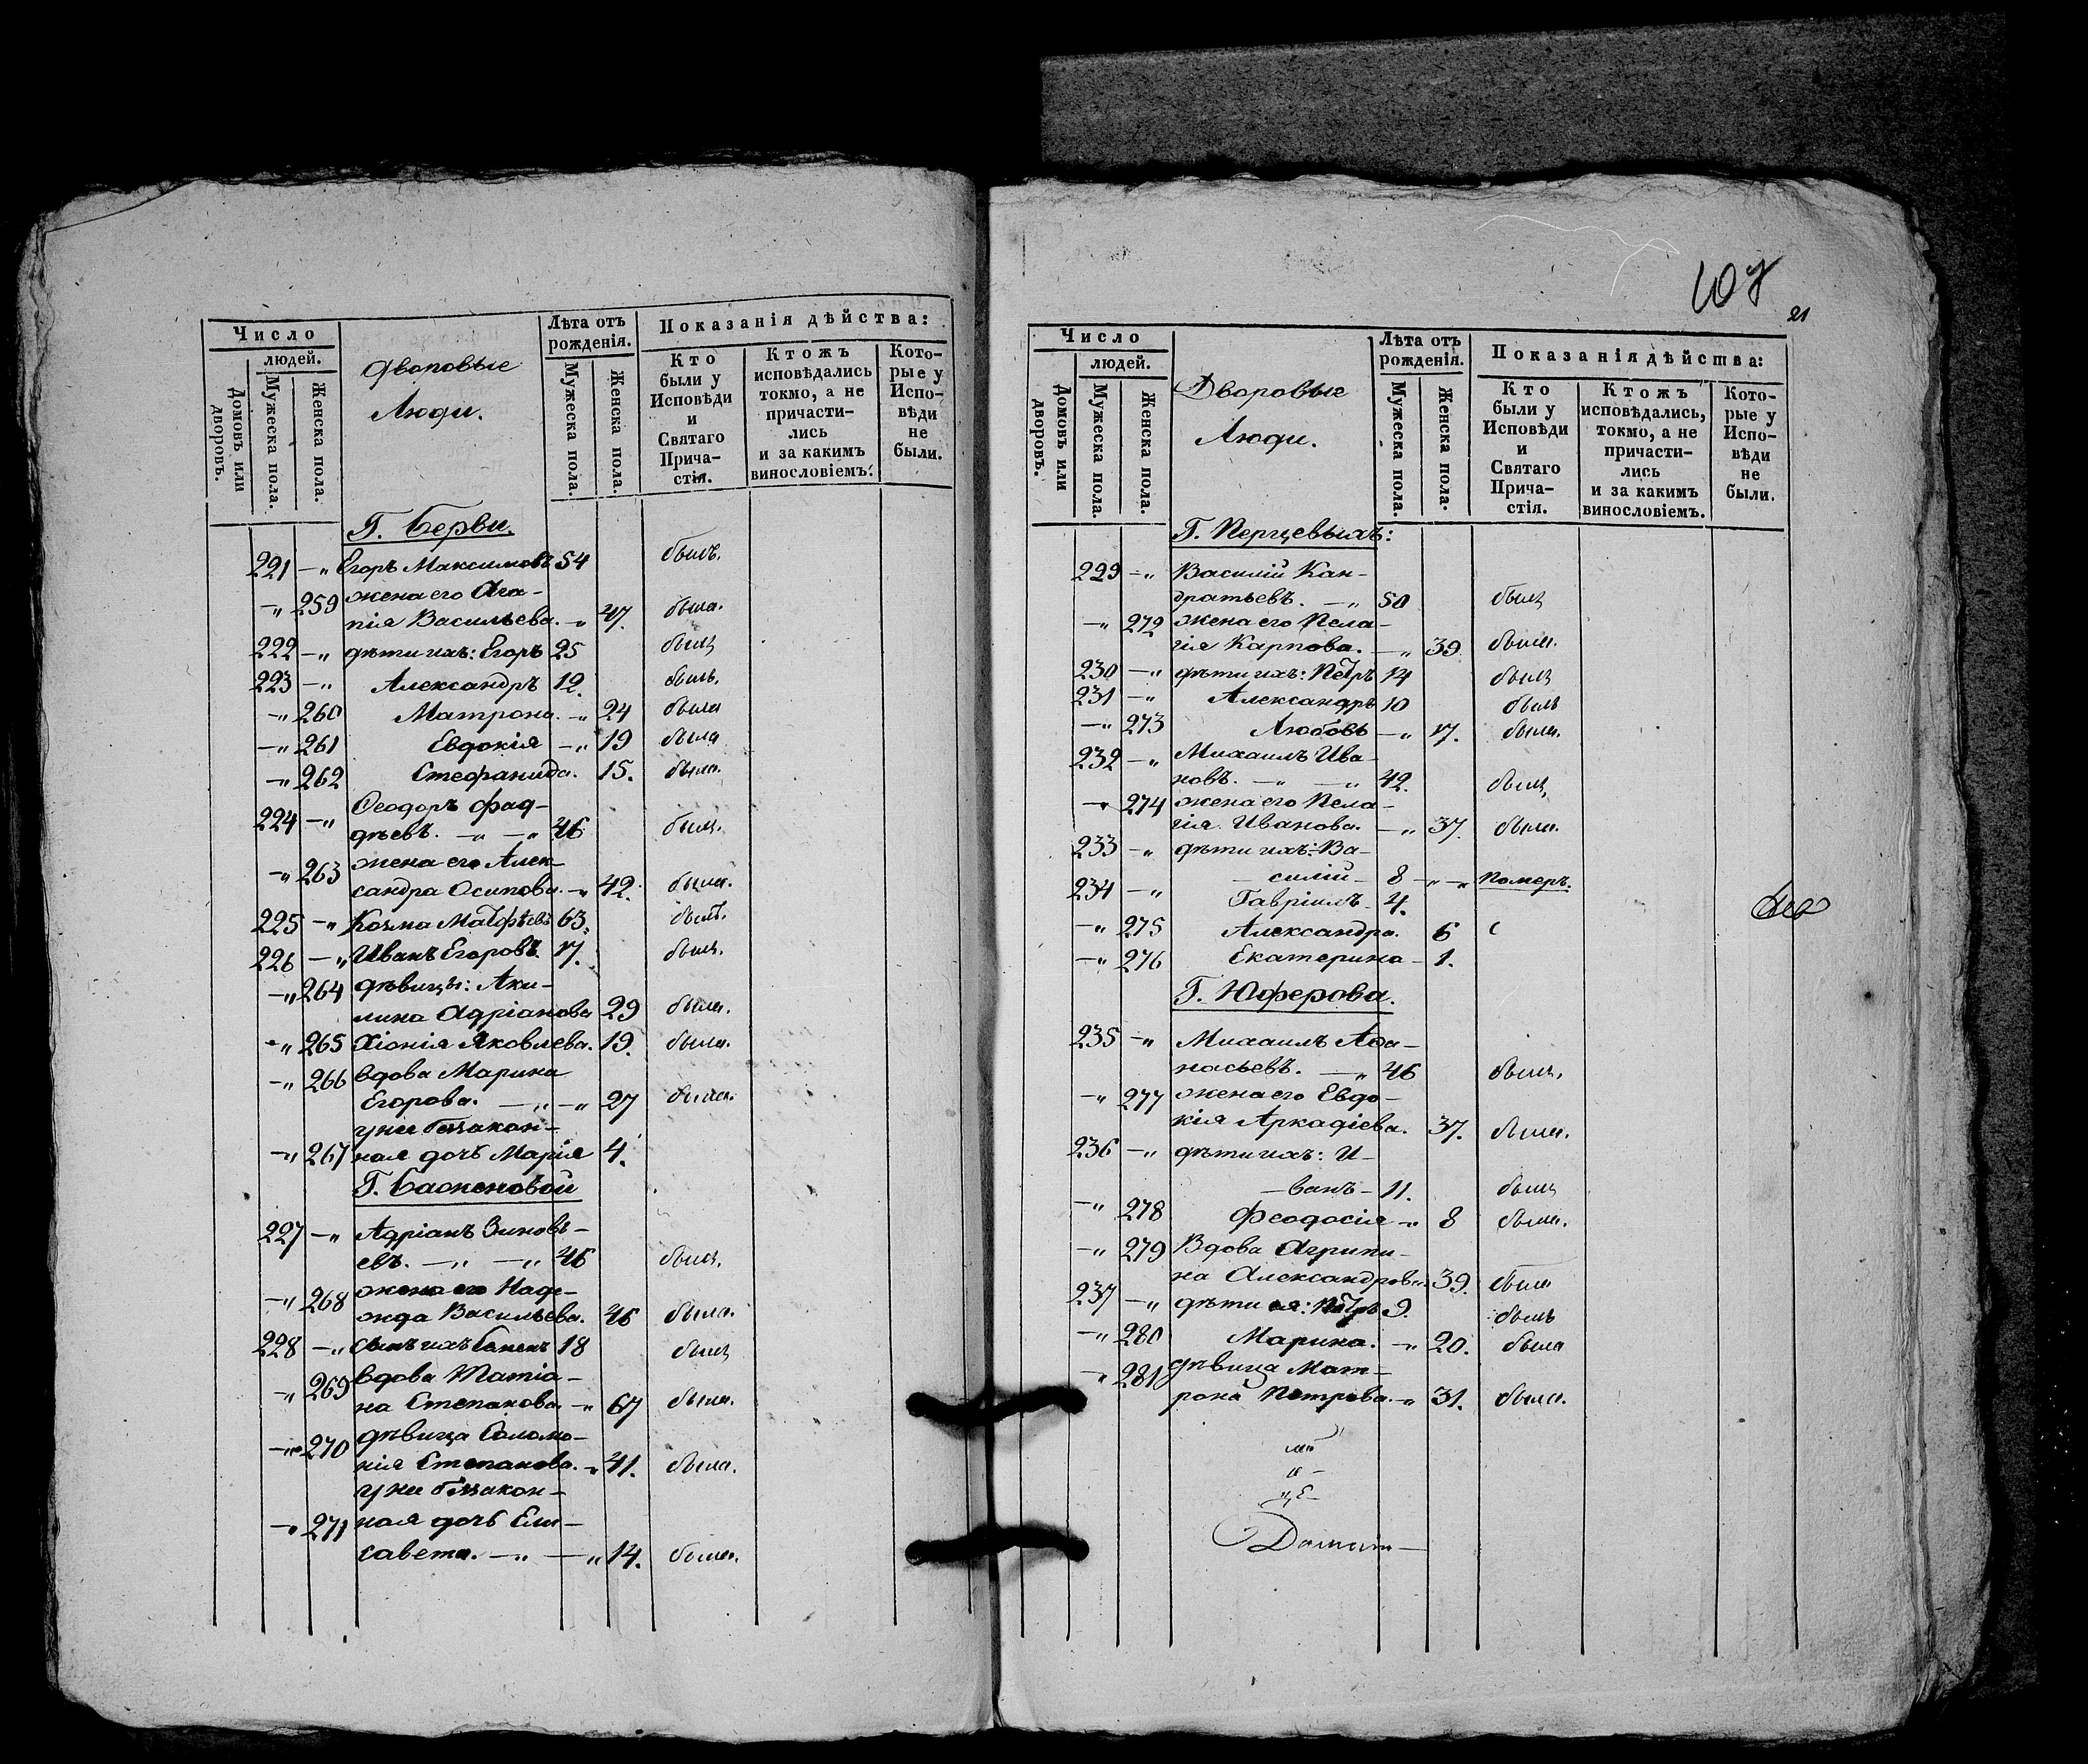 Число
людей.
Домовъ или дворовъ.
Мужеска пола.
Женска пола.
Дворовые
Люди.
Лѣта отъ
рожденія.
Мужеска пола.
Женска пола.
Показанія дѣйства:
Кто
были у
Исповѣди
и
Святаго
Прича-
стія.
Ктожъ
исповѣдались
токмо, а не
причасти-
лись
и за какимъ
винословіемъ.
Кото-
рые у
Испо-
вѣди
не
были.
Г. Берви.
221 —„ Егоръ Максимовъ 54 былъ.
—„ 259 жена его Ага-
пія Васильева. —„ 47. была.
222 —„ дѣти ихъ: Егоръ 25 былъ
223 —„ Александръ 12. былъ.
—„ 260 Матрона. —„ 24 была
—„ 261 Евдокія —„ 19 была
—„ 262 Стефанида. 15. была.
224 —„ Ѳеодоръ Фад-
дѣевъ. —„ —„ 46 былъ.
—„ 263 жена его Алек-
сандра Осипова. —„ 42. была.
225 —„ Козма Матфѣевъ 63. былъ.
226 —„ Иванъ Егоровъ. 17. былъ.
—„ 264 дѣвицы: Аки-
лина Адріанова 29 была.
—„ 265 Хіонія Яковлева. 19. была.
—„ 266 вдова Марина
Егорова. —„ —„ 27 была.
у ней беззакон-
—„ 267 ная дочь Марія 4.
Г. Баженовой
227 —„ Адріанъ Зиновь-
евъ. —„ —„ 46 былъ.
—„ 268 жена его Наде-
жда Васильева. 46 была.
228 —„ сынъ ихъ 18 былъ
—„ 269 вдова Татіа-
на Степанова. —„ 67 была.
—„ 270 дѣвица Соломо-
нія Степанова. —„ 41. была.
у ней беззакон-
—„ 271 ная дочь Ели-
савета. —„ —„ 14. была.
107
21
Число
людей.
Домовъ или дворовъ.
Мужеска пола.
Женска пола.
Дворовые
Люди.
Лѣта отъ
рожденія.
Мужеска пола.
Женска пола.
Показанія дѣйства:
Кто
были у
Исповѣди
и
Святаго
Прича-
стія.
Ктожъ
исповѣдались,
токмо, а не
причасти-
лись
и за какимъ
винословіемъ.
Кото-
рые у
Испо-
вѣди
не
были.
Г. Перцевыхъ:
229 —„ Василій Кан-
дратьевъ. —„ 50 былъ
—„ 272 жена его Пела-
гія Карпова. —„ 39 была.
230 —„ дѣти ихъ: Петръ 14 былъ
231 —„ Александръ 10 былъ
—„ 273 Любовь —„ 17. была.
232 —„ Михаилъ Ива-
новъ. —„ —„ 42. былъ
—„ 274 жена его Пела-
гія Иванова. —„ 37. была.
233 —„ дѣти ихъ: Ва-
силій — 8 —„ —„ померъ.
234 —„ Гавріилъ — 4.
—„ 275 Александра. 6
—„ 276 Екатерина — 1.
Г. Юферова.
235 —„ Михаилъ Аѳа-
насьевъ. —„ 46 былъ.
—„ 277 жена его Евдо-
кія Аркадіева. 37. была.
236 —„ дѣти ихъ: И-
ванъ — 11. былъ
—„ 278 Феодосія —„ 8 была.
—„ 279 Вдова Агрипи-
на Александрова. 39. была
237 —„ дѣти ея: Петръ 9. былъ
—„ 280 Марина. —„ 20. была
—„ 281 дѣвица Мат-
рона Петрова. —„ 31. была.